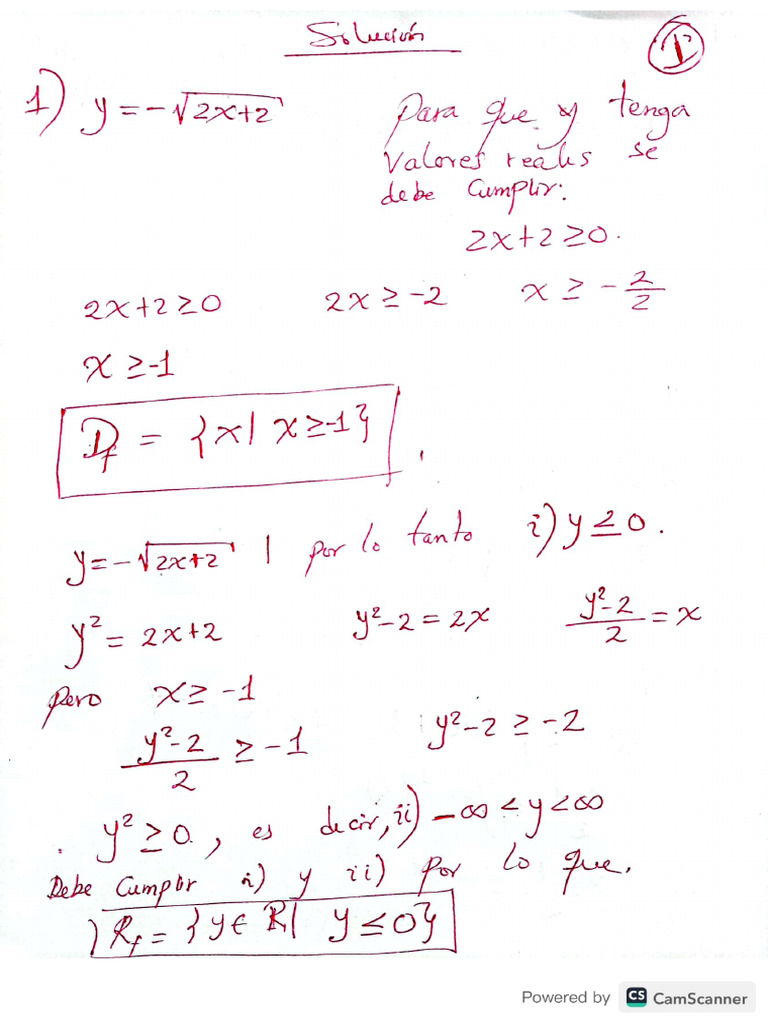 Solución
1
1) y = -√2x+2
Para que y tenga
valores reales se
debe cumplir:
2x+2≥0.
2x+2≥0 2x ≥ -2 x ≥ - 2/2
x ≥ -1
Df = {x| x≥-1}
y = -√2x+2 | por lo tanto i) y ≤ 0.
y² = 2x+2 y²-2 = 2x y²-2/2 = x
pero x ≥ -1
y²-2/2 ≥ -1 y²-2 ≥ -2
y² ≥ 0, es decir, ii) -∞ < y < ∞
Debe cumplir i) y ii) por lo que.
Rf = {y∈R| y ≤ 0}
Powered by CS CamScanner